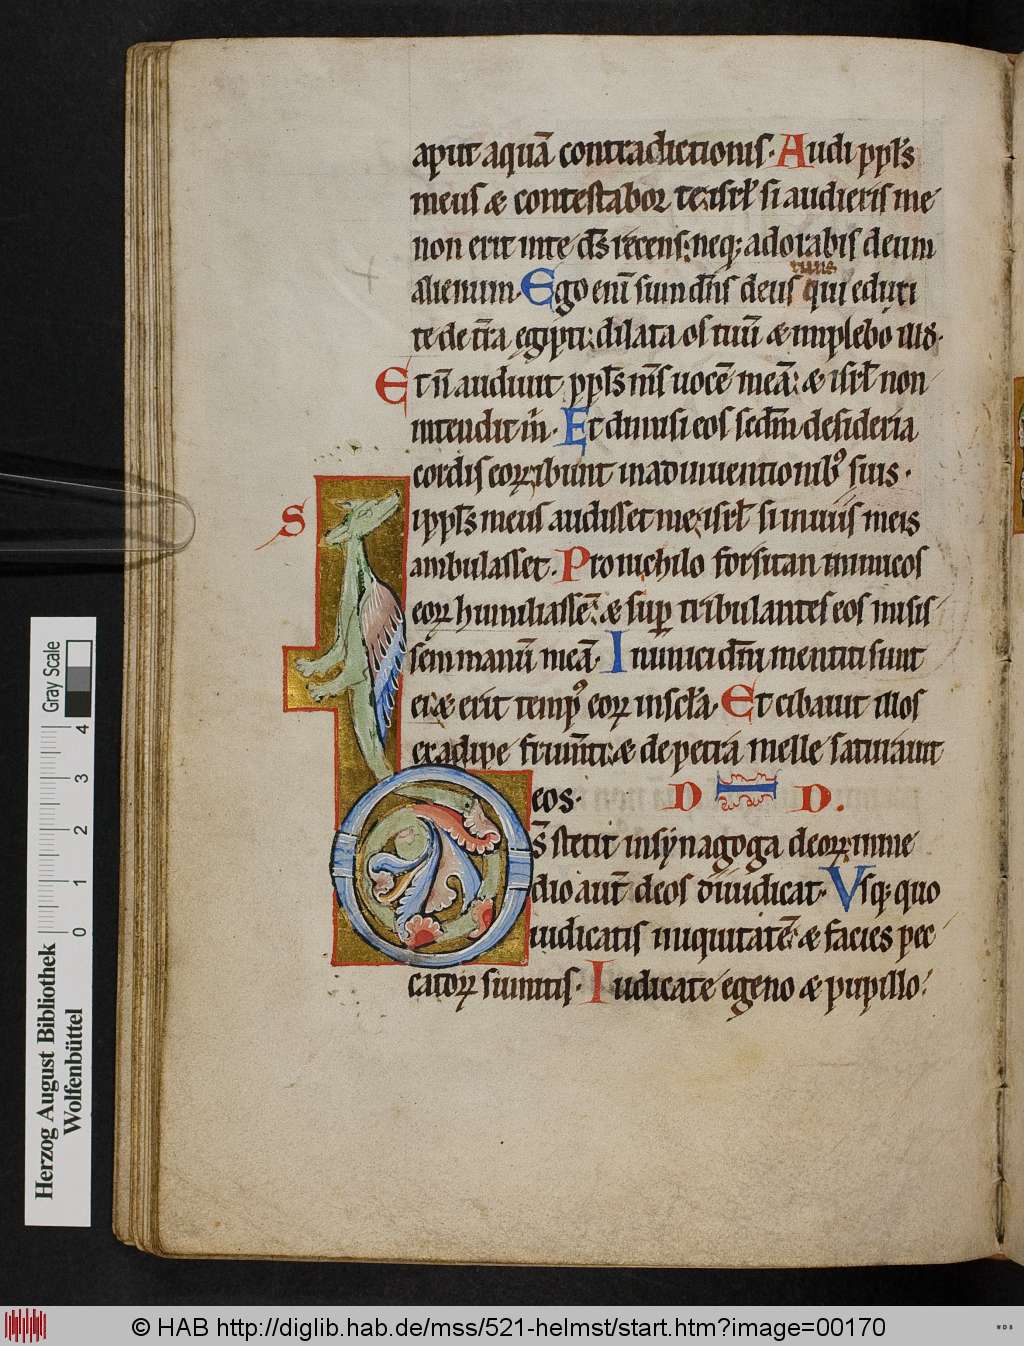 aput aquā contradictionis. Audi ppl̄s
meus & contestabor te: isrl̄ si audieris me
non erit in te ds̄ recens: neq; adorabis deum
alienum. Ego eni͂ sum dn̄s deus tuus qui eduxi
te de tr̄a egipti: dilata os tuū & implebo illud.
Et n̄ audiuit ppl̄s m̄s uocē meā: & isrl̄ non
intendit m̄. Et dimisi eos scdm̄ desideria
cordis eoꝝ: ibunt in adinuentionibꝰ suis.
Si ppl̄s meus audisset me: isrl̄ si in uiis meis
ambulasset. Pro nichilo forsitan inimicos
eoꝝ humiliassē: & sup̄ tribulantes eos misis
sem manū meā. Inimici dn̄i mentiti sunt
ei: & erit temp̄ꝰ eoꝝ in scl̄a. Et cibauit illos
ex adipe frum̄ti: & de petra melle saturauit
eos. D I D.
Ds̄ stetit in synagoga deoꝝ: in me
dio aut̄ deos diiudicat. Vsq; quo
iudicatis iniquitatē: & facies pec
catoꝝ sumitis. Iudicate egeno & pupillo:
Gray Scale
0 1 2 3 4
Herzog August Bibliothek
Wolfenbüttel
© HAB http://diglib.hab.de/mss/521-helmst/start.htm?image=00170